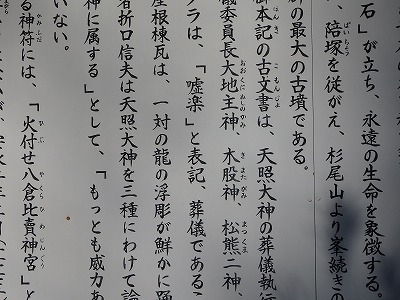 石」が立ち、永遠の生命を象徴する。
、陪塚を従がえ、杉尾山より峯続きの
の最大の古墳である。
本記の古文書は、天照大神の葬儀執行
儀委員長大地主神、木股神、松熊二神、
グラは、「嘘楽」と表記、葬儀であるこ
屋根棟瓦は、一対の龍の浮彫が鮮かに踊
者折口信夫は天照大神を三種にわけて論
神に属する」として、「もっとも威力あ
いない。
る神符には、「火付せ八倉比賣神宮」と